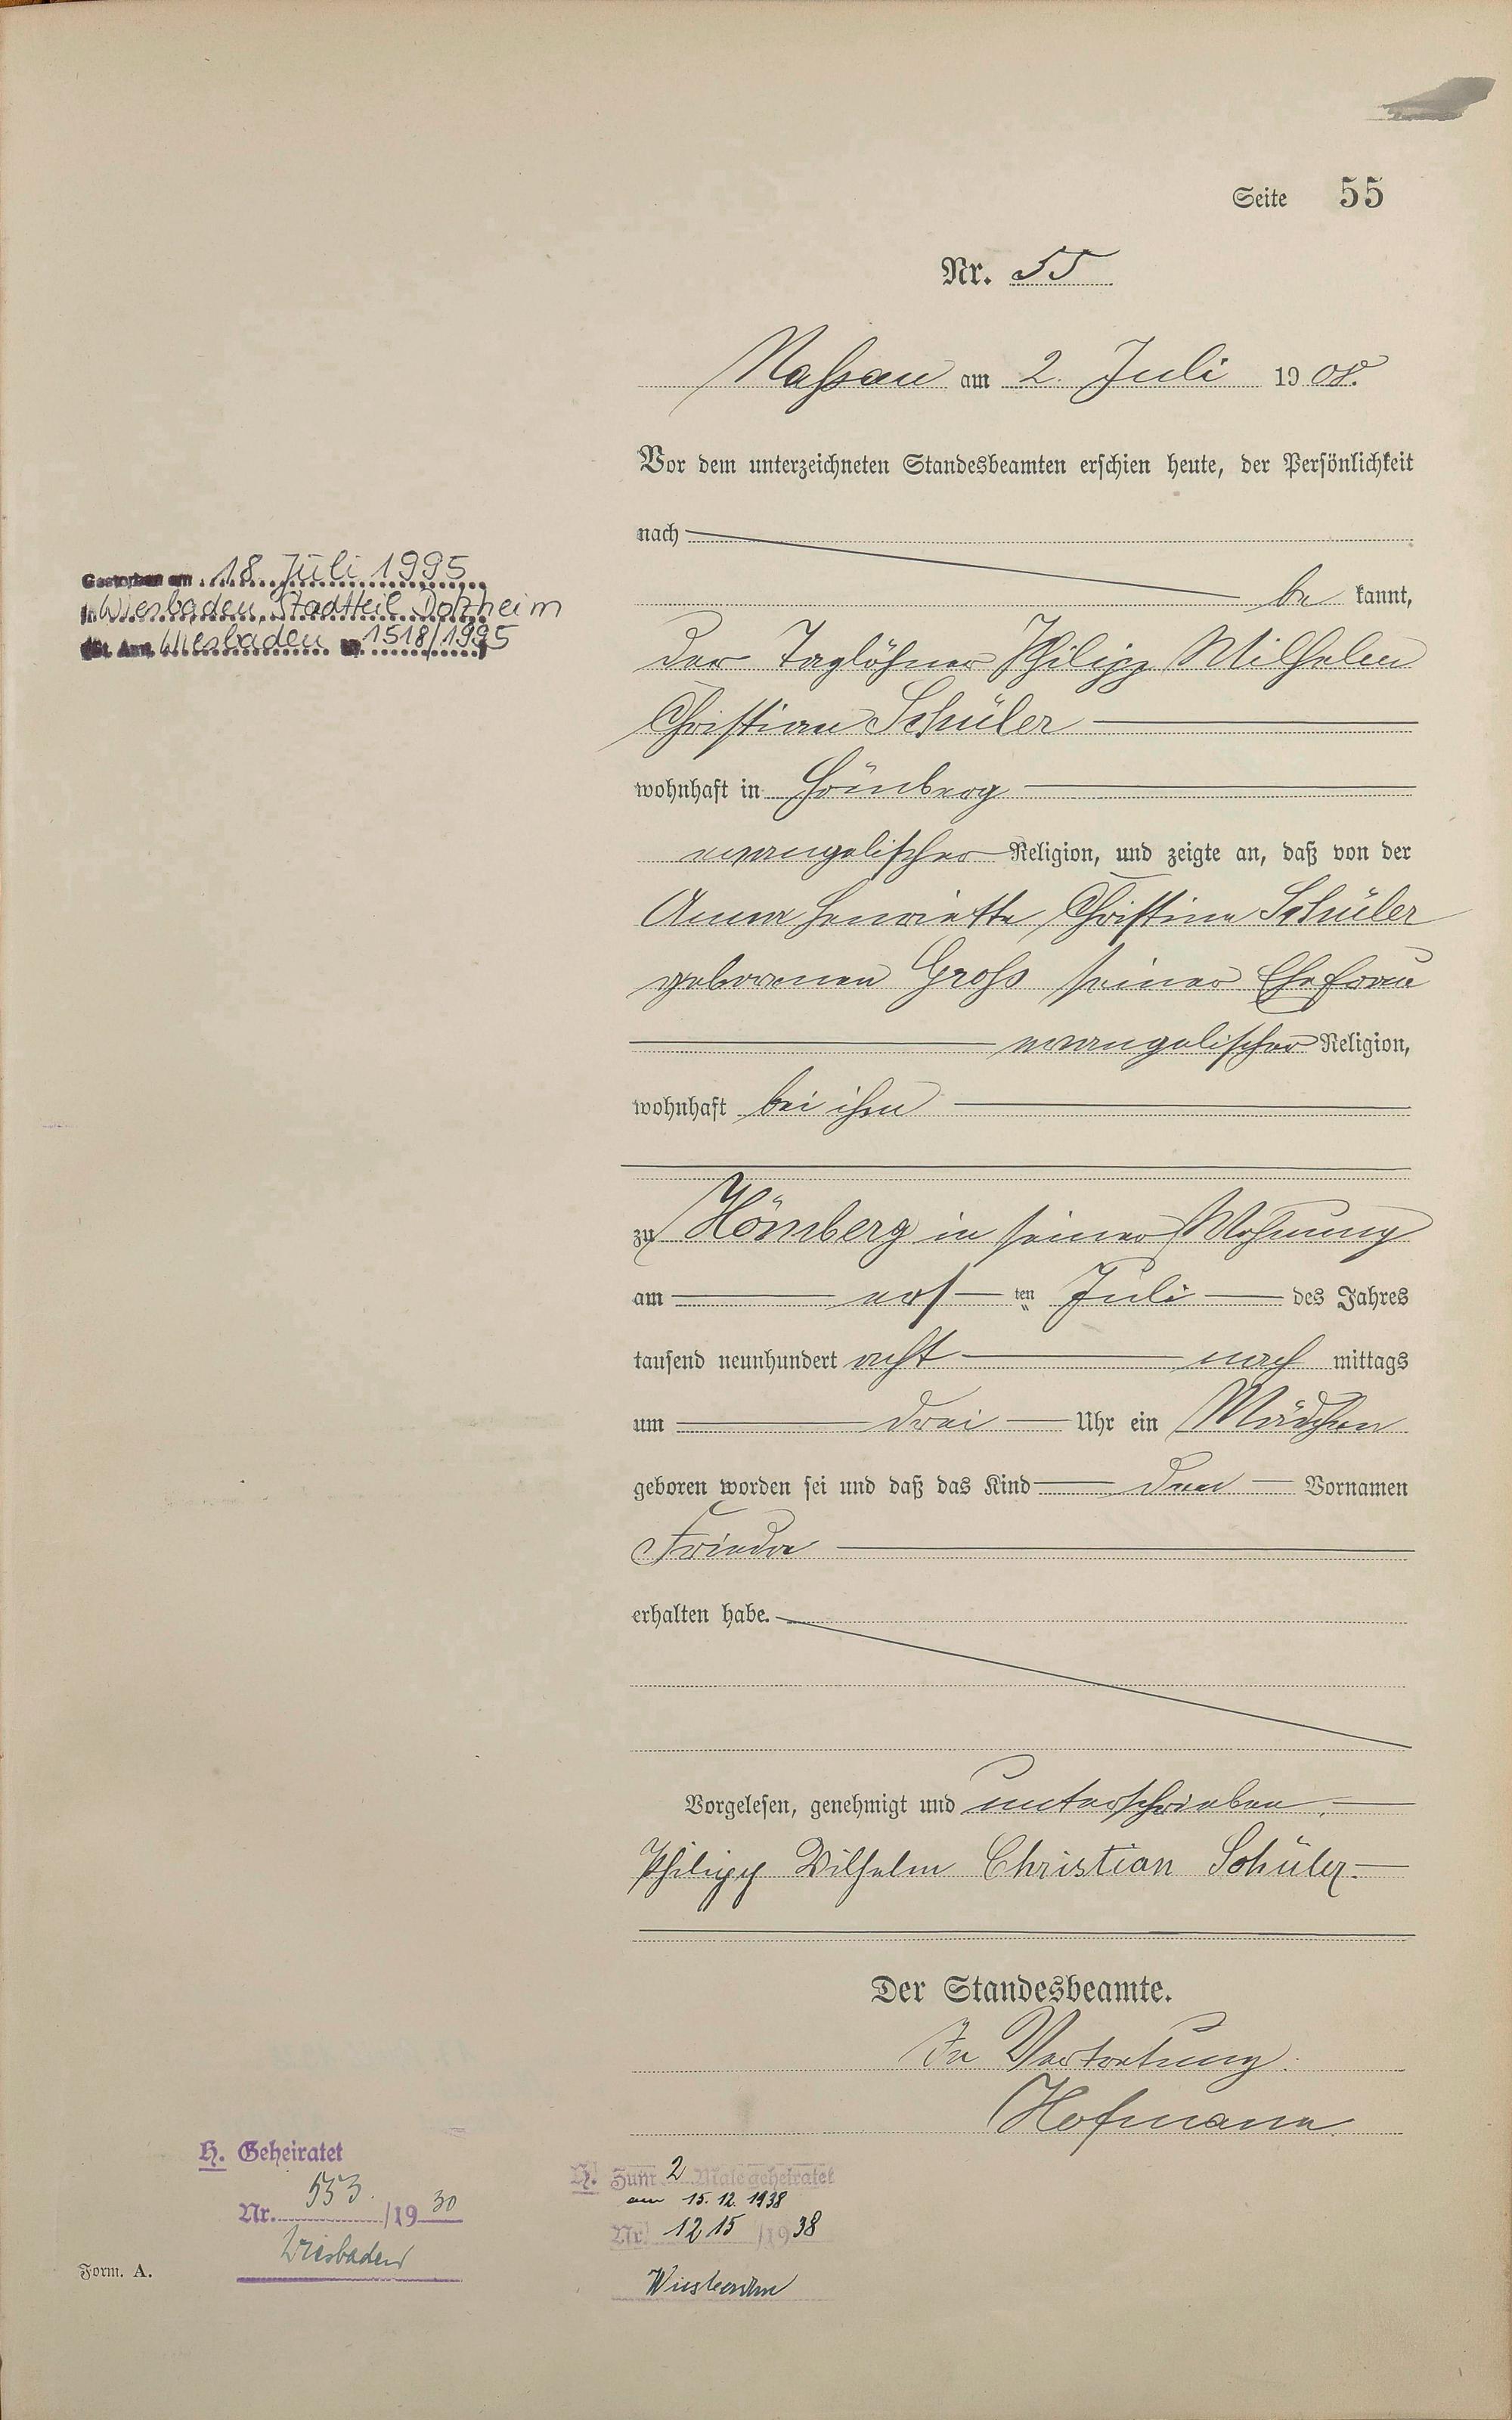 Seite 55
Nr. 55
Nassau am 2. Juli 1908.
Vor dem unterzeichneten Standesbeamten erschien heute, der Persönlichkeit
nach
be kannt,
der Taglöhner Philipp Wilhelm
Christian Schüler
wohnhaft in Hömberg
evangelischer Religion, und zeigte an, daß von der
Anna Henriette Christine Schüler
geborenen Groß seiner Ehefrau
evangelischer Religion,
wohnhaft bei ihm
zu Hömberg in seiner Wohnung
am ersten Juli des Jahres
tausend neunhundert acht nach mittags
um drei Uhr ein Mädchen
geboren worden sei und daß das Kind den Vornamen
Frieda
erhalten habe.
Vorgelesen, genehmigt und unterschrieben.
Philipp Wilhelm Christian Schüler.
Der Standesbeamte.
In Vertretung.
Hofmann
Gestorben am 18. Juli 1995
in Wiesbaden, Stadtteil Dotzheim
(St. Amt Wiesbaden Nr. 1518/1995)
H. Geheiratet
Nr. 553. /1930
Wiesbaden
H. Zum 2 Male geheiratet
am 15.12.1938
Nr. 1215 /1938
Wiesbaden
Form. A.